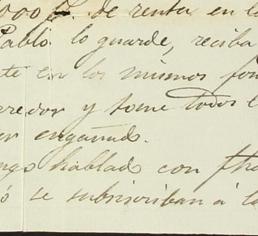 000 £. de renta en la
Pablo lo guarde, reciba
te en los mismos fon
rredor y tome todos l
er engañado.
ngo hablado con
ó se subscriban á la